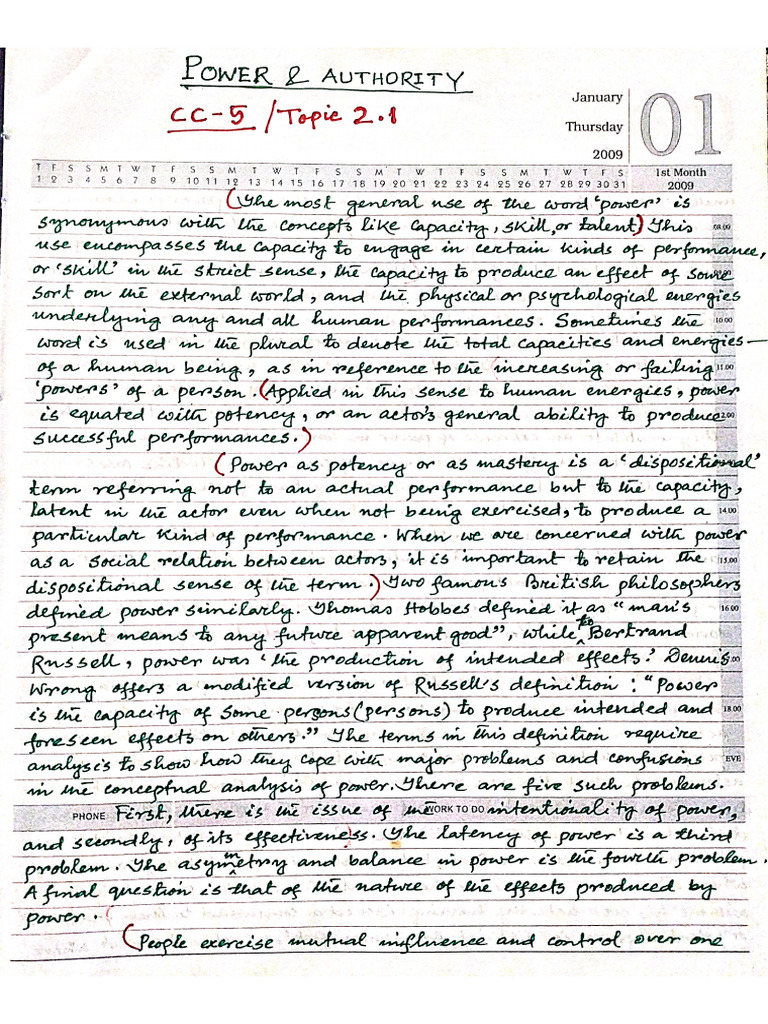 POWER & AUTHORITY
CC-5 / Topic 2.1
January
Thursday
2009
01
T F S S M T W T F S S M T W T F S S M T W T F S S M T W T F S
1 2 3 4 5 6 7 8 9 10 11 12 13 14 15 16 17 18 19 20 21 22 23 24 25 26 27 28 29 30 31
1st Month
2009
(The most general use of the word 'power' is
synonymous with the concepts like capacity, skill, or talent) This
08.00
use encompasses the capacity to engage in certain kinds of performance,
or 'skill' in the strict sense, the capacity to produce an effect of some
sort on the external world, and the physical or psychological energies
underlying any and all human performances. Sometimes the
10.00
word is used in the plural to denote the total capacities and energies—
of a human being, as in reference to the increasing or failing
11.00
'powers' of a person. (Applied in this sense to human energies, power
is equated with potency, or an actor's general ability to produce
2.00
successful performances.)
(Power as potency or as mastery is a 'dispositional'
term referring not to an actual performance but to the capacity,
latent in the actor even when not being exercised, to produce a
14.00
particular kind of performance. When we are concerned with power
as a social relation between actors, it is important to retain the
15.00
dispositional sense of the term.) Two famous British philosophers
defined power similarly. Thomas Hobbes defined it as "man's
16.00
present means to any future apparent good", while to Bertrand
Russell, power was 'the production of intended effects.' Dennis
.00
Wrong offers a modified version of Russell's definition : "Power
is the capacity of some persons (persons) to produce intended and
18.00
foreseen effects on others." The terms in this definition require
analysis to show how they cope with major problems and confusions
EVE
in the conceptual analysis of power. There are five such problems.
PHONE
WORK TO DO
First, there is the issue of the intentionality of power,
and secondly, of its effectiveness. The latency of power is a third
problem. The asymmetry and balance in power is the fourth problem.
A final question is that of the nature of the effects produced by
power. (
(People exercise mutual influence and control over one